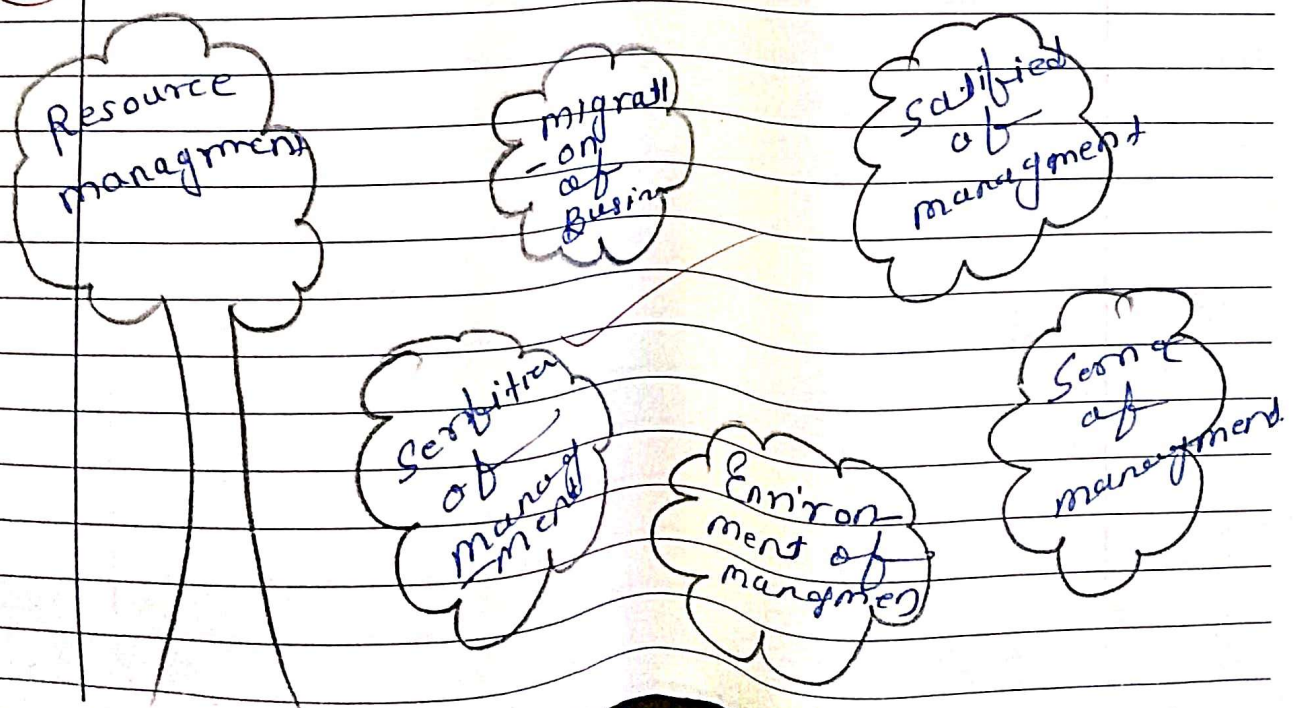 Resource
managment
migrati
-on
of
Busin
Satified
of
managment
of
manag
ment
Environ
ment of
mangmen
of
managment